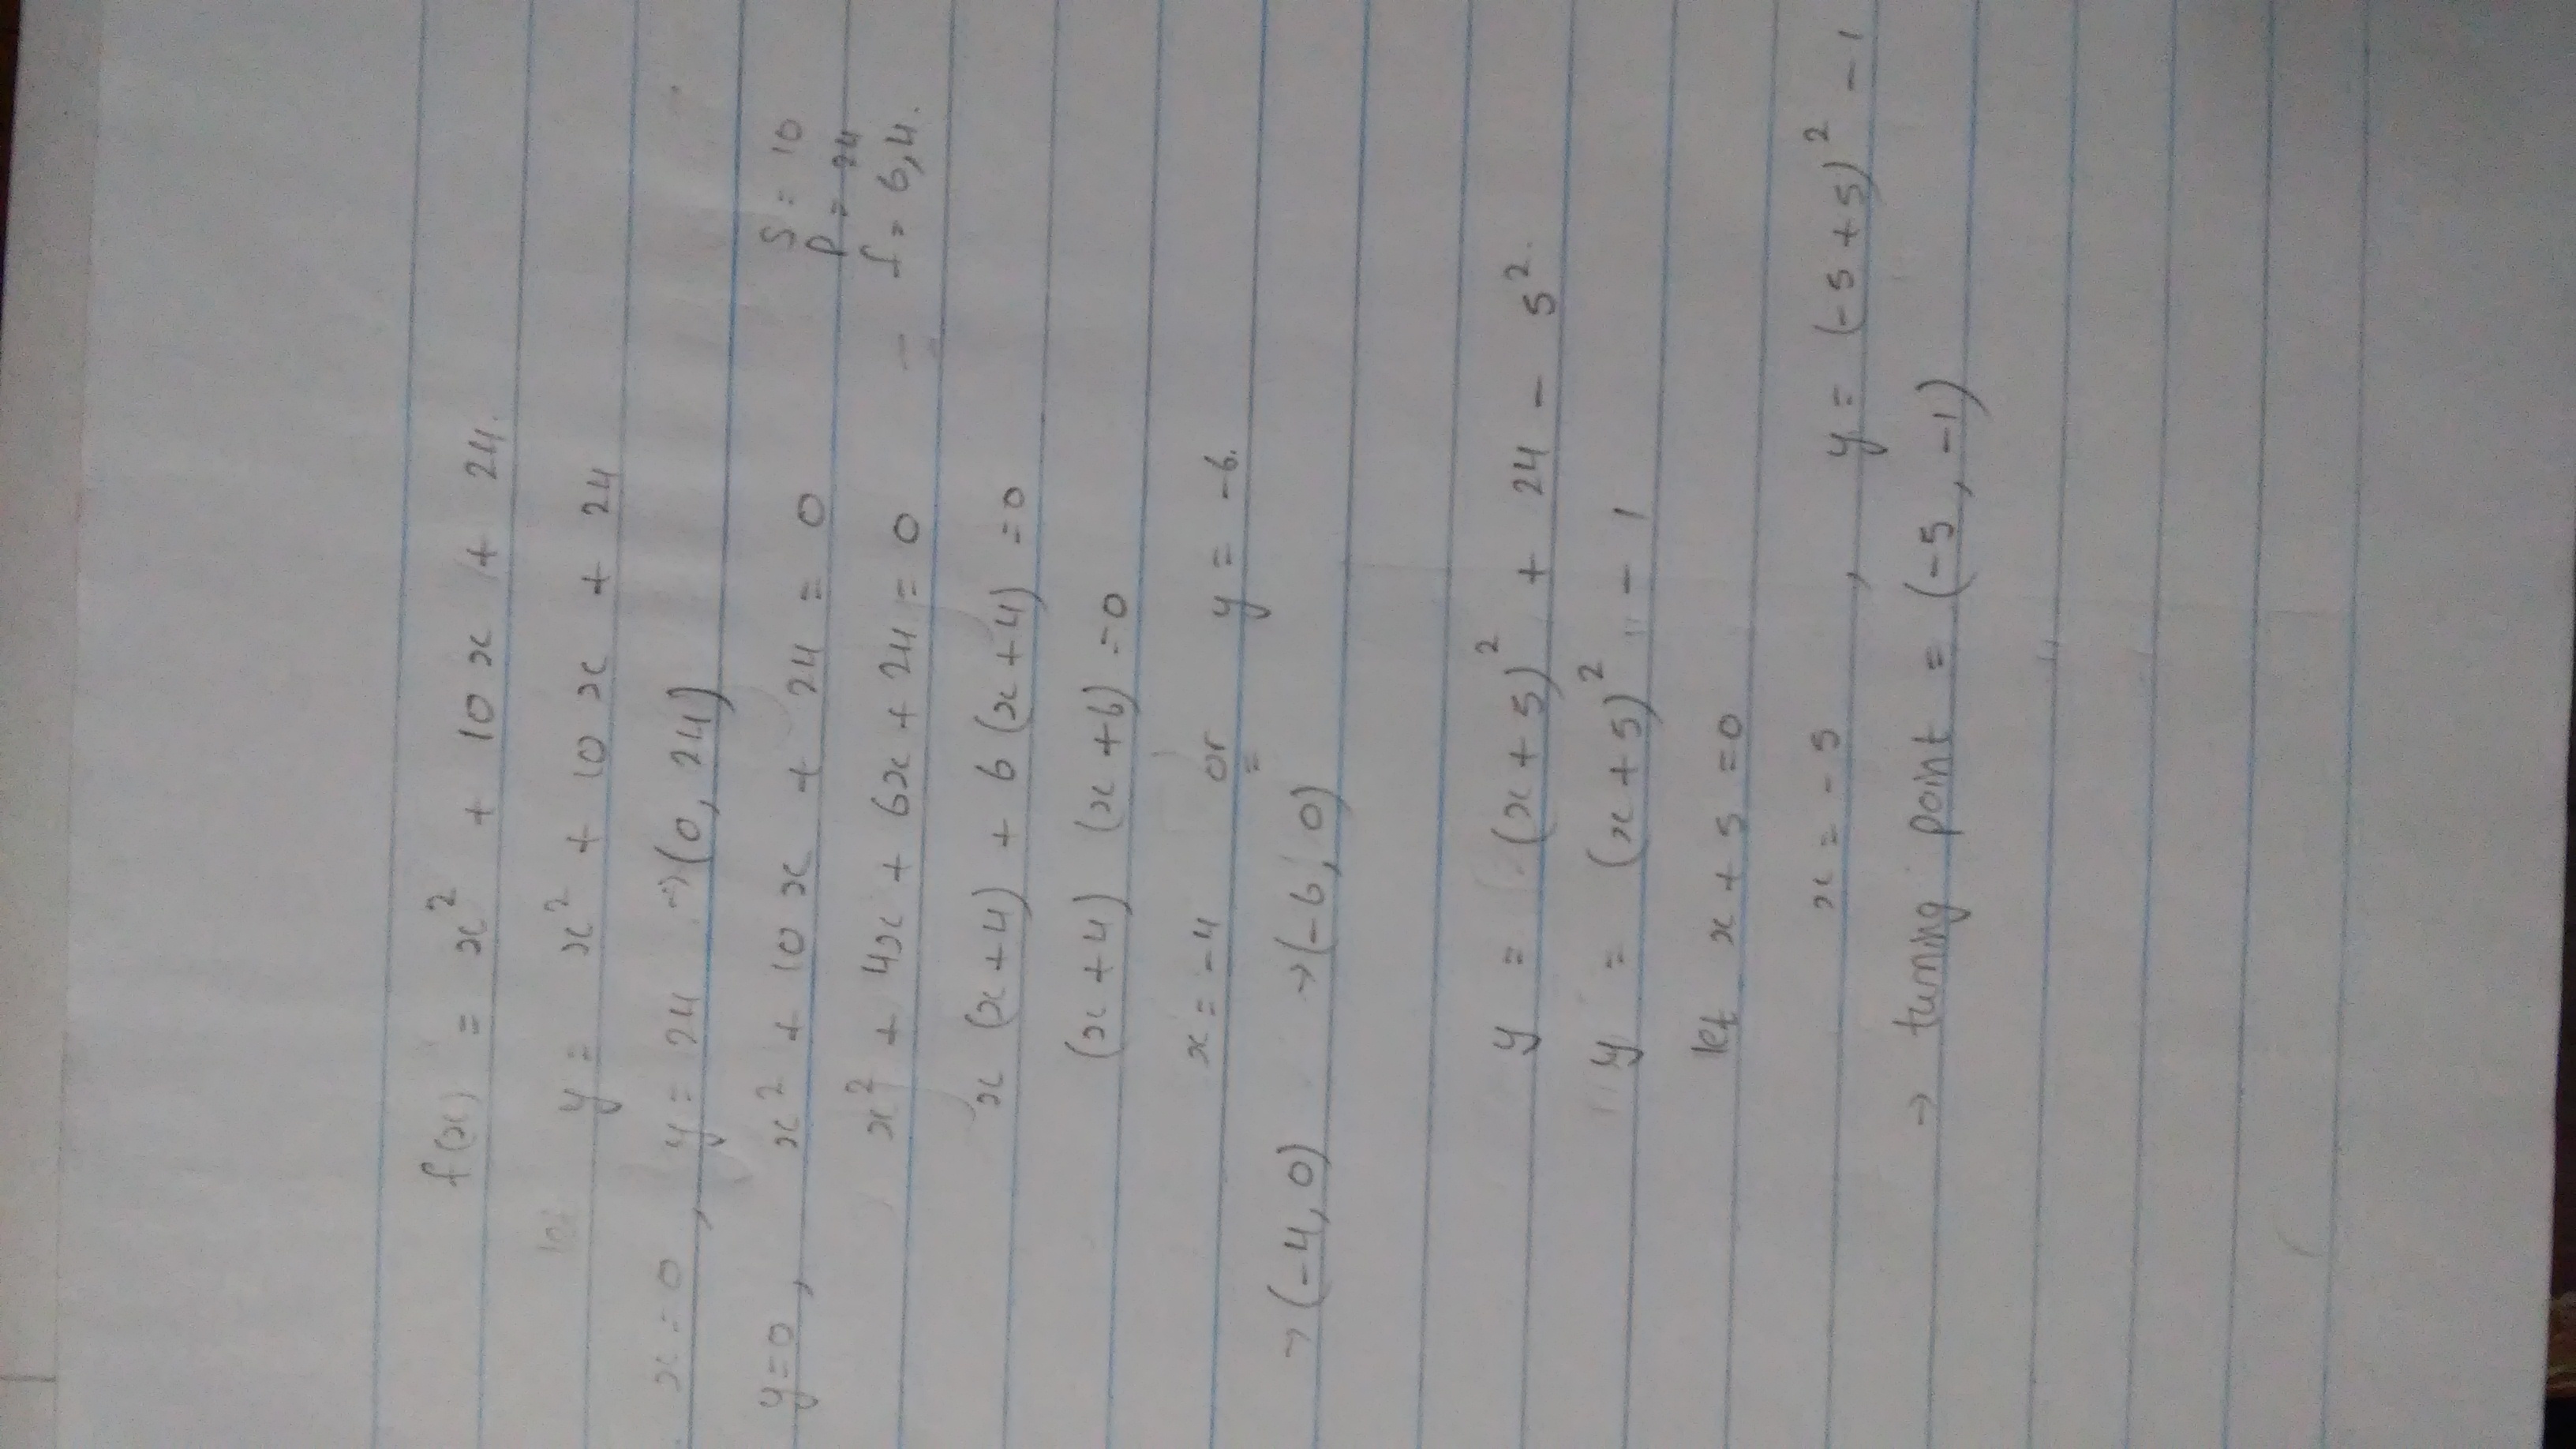 f(x) = x² + 10x + 24.
y = x² + 10x + 24
x = 0, y = 24 → (0, 24)
y=0, x² + 10x + 24 = 0 S = 10
P = 24
x² + 4x + 6x + 24 = 0 f = 6,4.
x (x+4) + 6 (x+4) = 0
(x+4) (x+6) = 0
x = -4 or y = -6.
→ (-4, 0) → (-6, 0)
y = (x+5)² + 24 - 5².
y = (x+5)² - 1
let x + 5 = 0
x = -5, y = (-5+5)² - 1
→ turning point = (-5, -1)